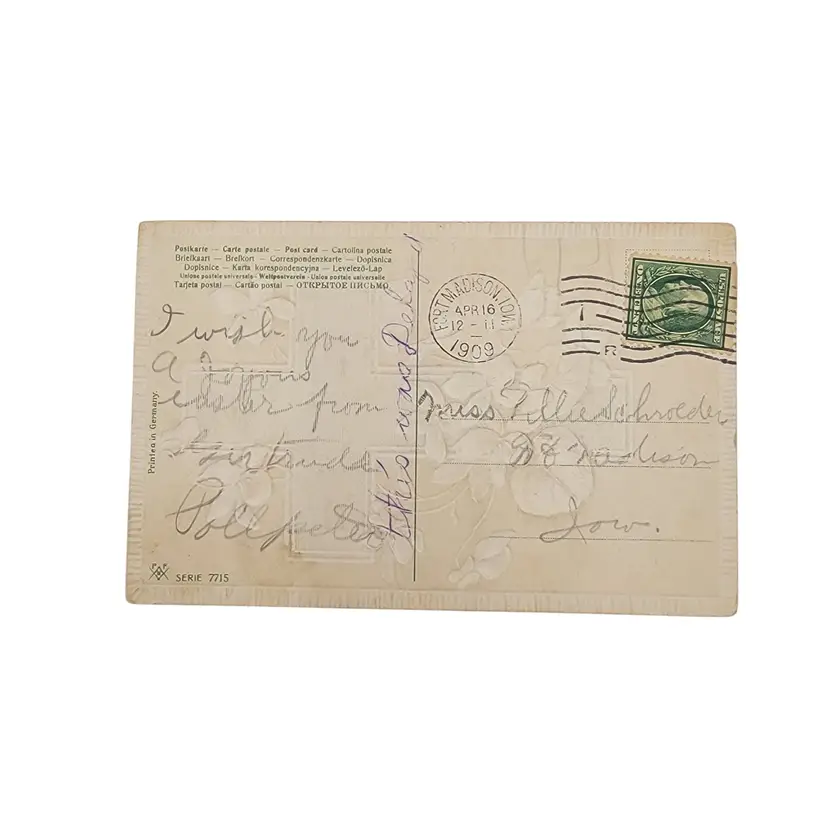 Postkarte — Carte postale — Post card — Cartolina postale
Briefkaart — Brefkort — Correspondenzkarte — Dopisnica
Dopisnice — Karta korespondencyjna — Levelező-Lap
Unione postale universale — Weltpostverein — Union postale universelle
Tarjeta postal — Cartão postal — ОТКРЫТОЕ ПИСЬМО
I wish you
A Joyous
easter from
Gertrude
this was
Printed in Germany.
SERIE 7715
FORT MADISON, IOWA
APR 16
12 - M
1909
R
Miss Tillie Schroeder
Ft Madison
Iow.
U.S. POSTAGE
ONE CENT